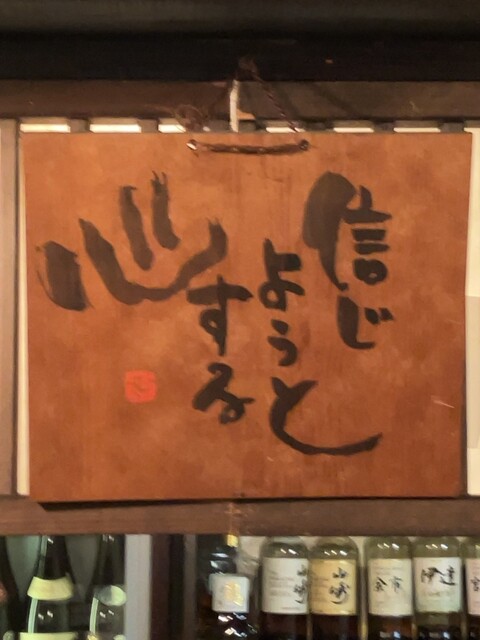 信じ
ようと
する
心
山崎
山崎
余市
伊達